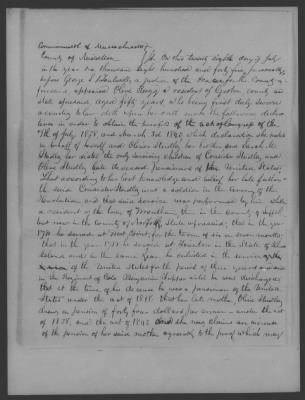 Commonwealth of Massachusetts
County of Middlesex SS. On this twenty eighth day of July
in the year one thousand eight hundred and forty five personally
before George a justice of the Peace for the County a-
foresaid appeared Olive a resident of Groton county
State aforesaid aged fifty years, who being first duly sworn
according to law doth upon her oath make the following declara
tion in order to obtain the benefits of the act of Congress of the
7th of July 1838 and March 3d 1843 which declaration she makes
in behalf of herself and Oliver Studley her brother and Sarah M.
Studley her sister the only surviving children of Consider Studley and
Olive Studley late deceased pensioners of the United States
That according to her best knowledge and belief her late father
the said Consider Studley was a soldier in the Army of the
Revolution and that said service was performed by him while
a resident of the town of then in the County of Suffolk
but now in the County of Norfolk State aforesaid; that in the year
he served at West Point, for the term of six or seven months;
that in the year he served at in the State of Rhode
Island and in the same year he enlisted in the service of the
of the United States for the period of three years and was
in the Regiment of Col. Benjamin Tupper until he was discharged
that at the time of his decease he was a pensioner of the United
States under the act of 1818. that her late mother, Olive Studley
drew a pension of forty four dollars per annum under the act
of 1838, and the act of 1843 and she now claims an increase
of the pension of her said mother agreeably to the proof which may